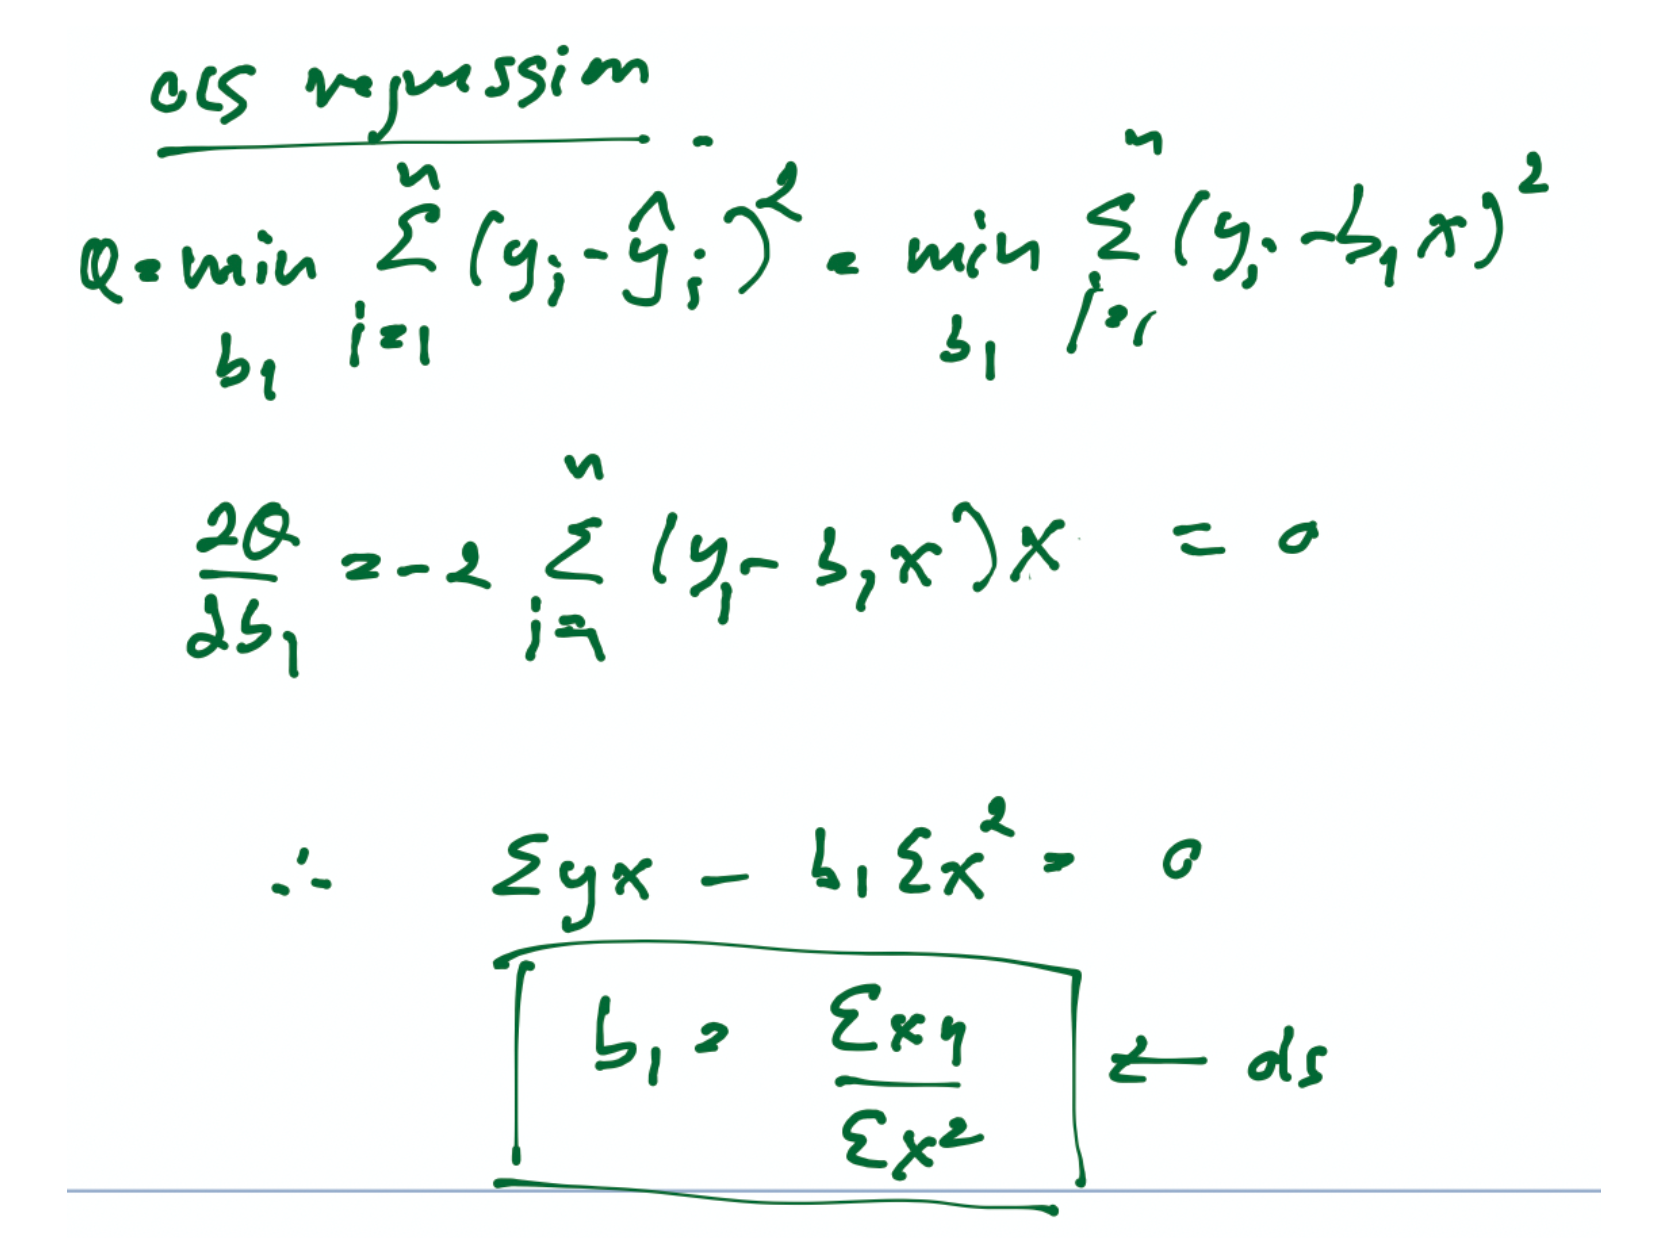 OLS regression
Q = min_{b_1} Σ_{i=1}^{n} (y_i - ŷ_i)^2 = min_{b_1} Σ_{i=1}^{n} (y_i - b_1 x)^2
∂Q/∂b_1 = -2 Σ_{i=1}^{n} (y_i - b_1 x) x = 0
∴ Σyx - b_1 Σx^2 = 0
b_1 = Σxy/Σx^2 ← ols